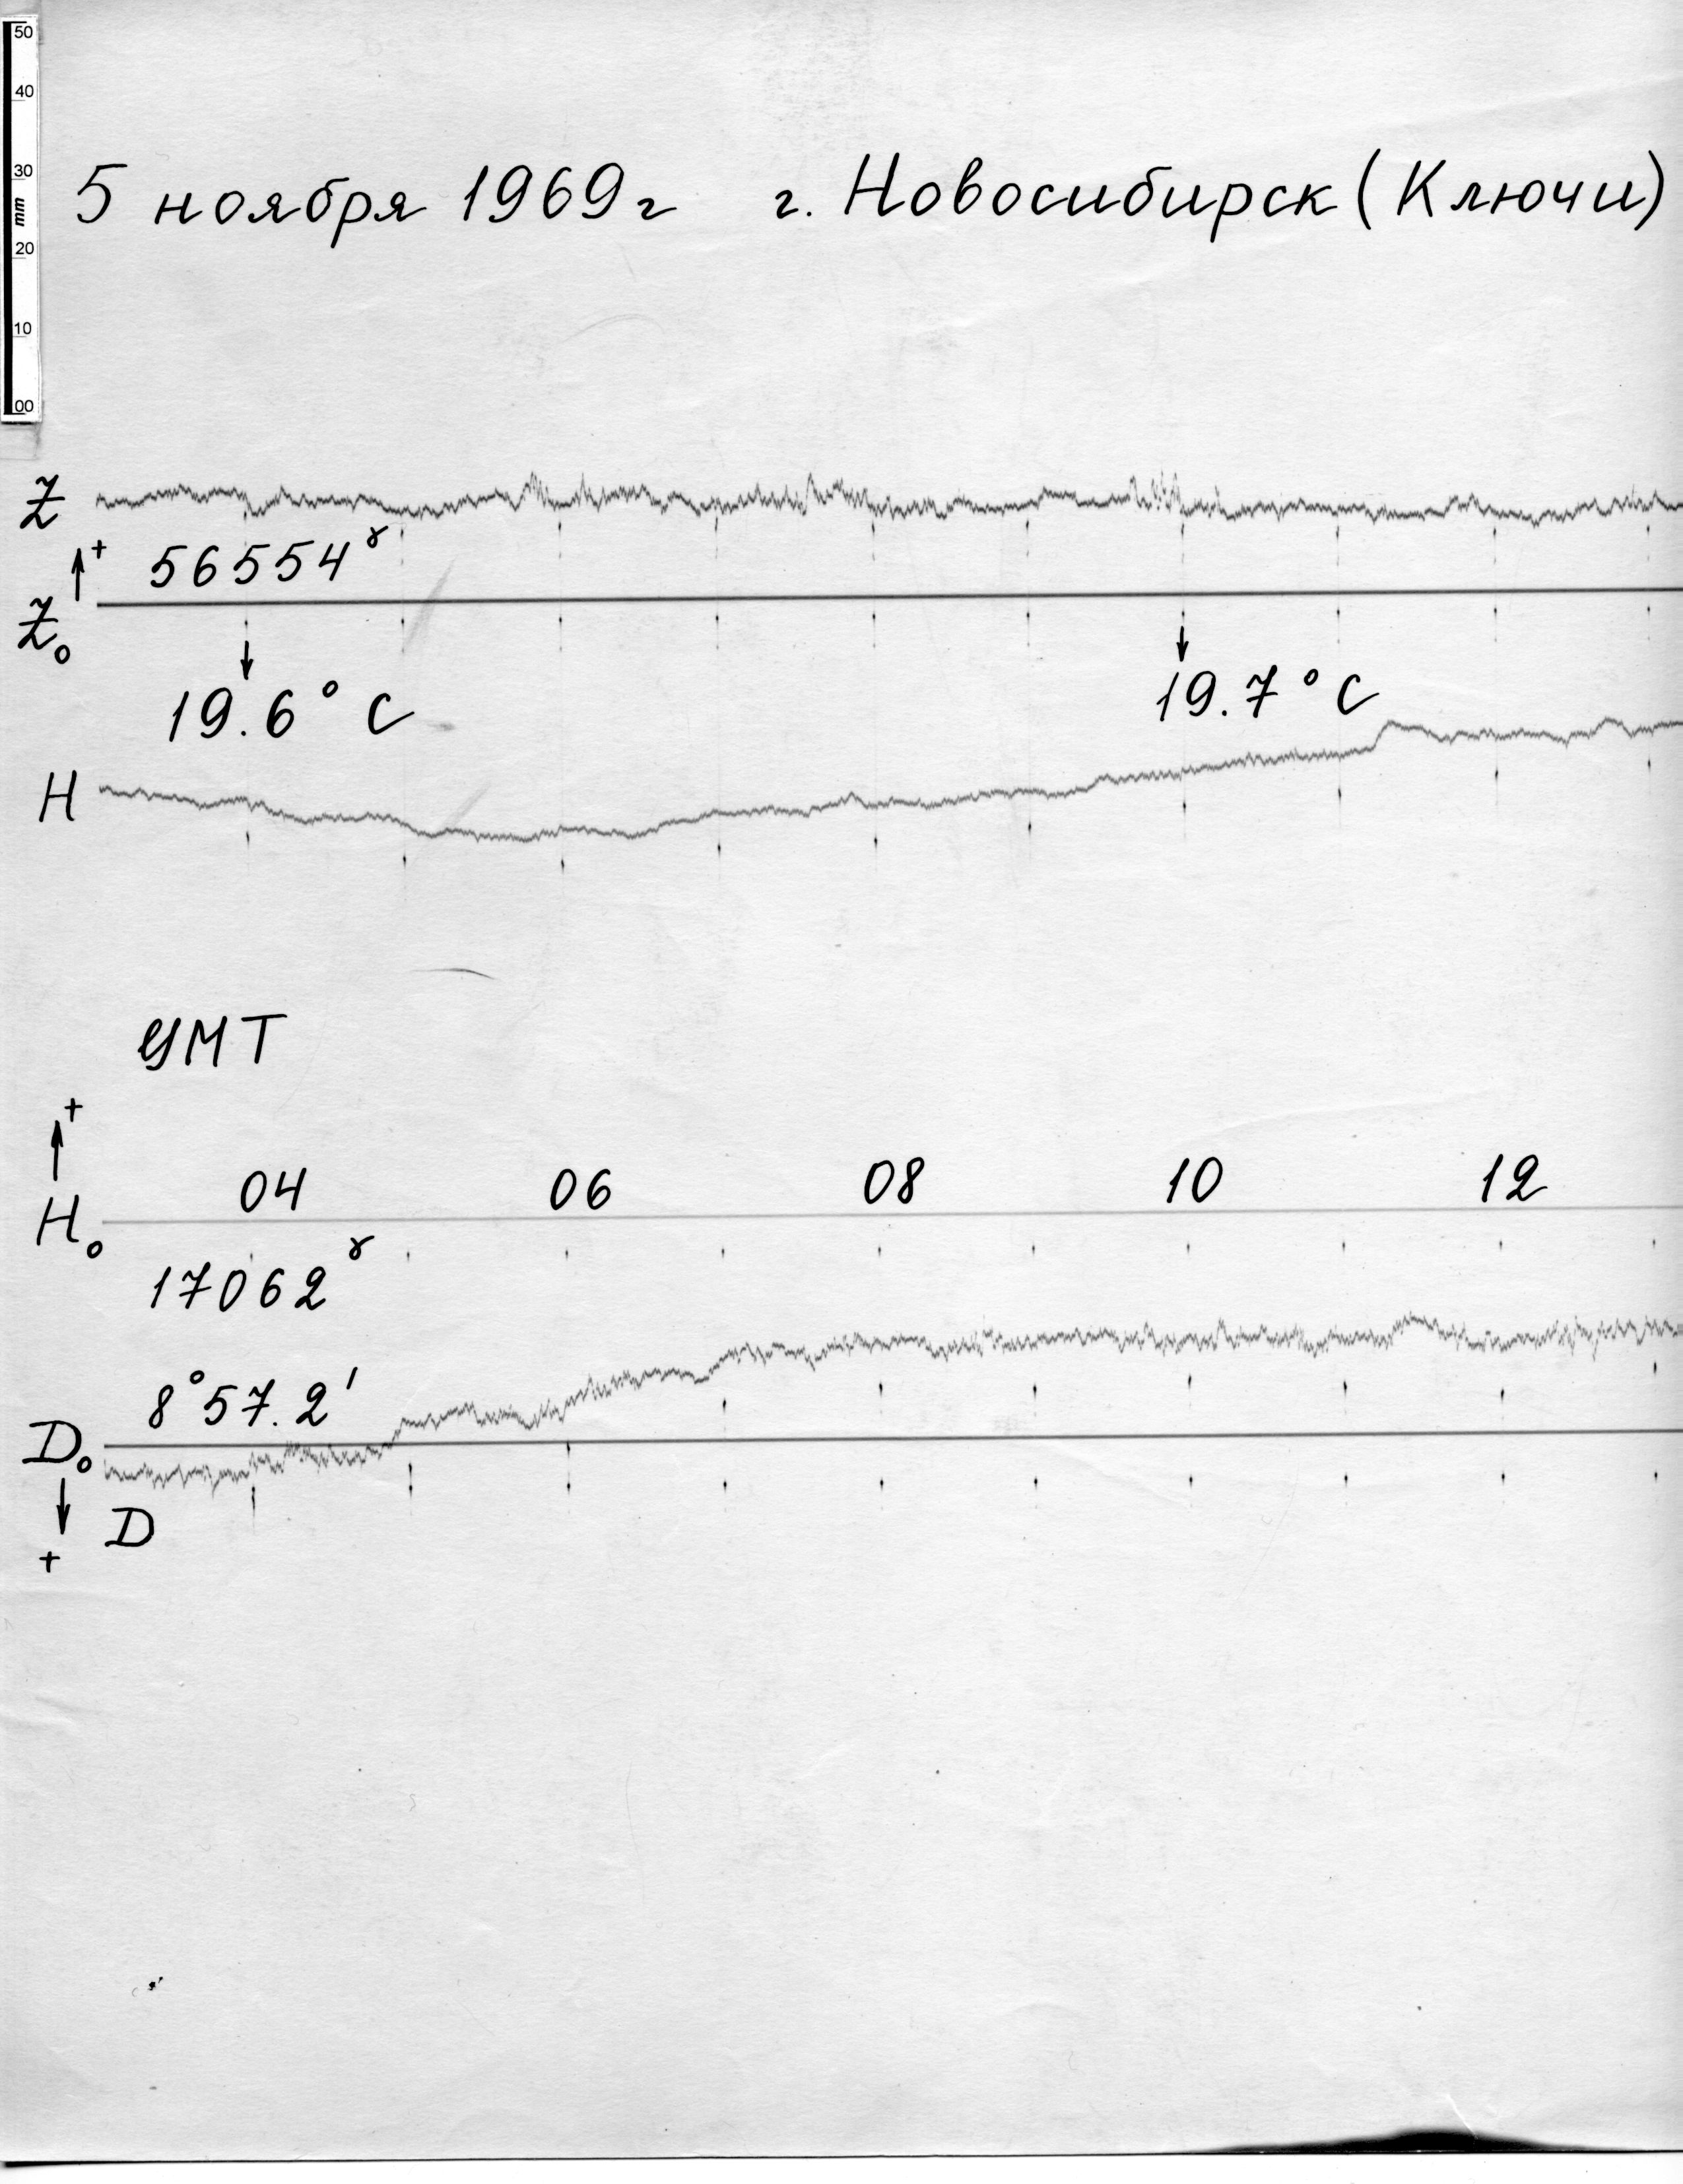 50
40
30
mm
20
10
00
5 ноября 1969г г. Новосибирск (Ключи)
Z
+
56554γ
Z₀
19.6° C
19.7° C
H
УМТ
+
04 06 08 10 12
H₀
17062γ
8°57.2'
D₀
D
+